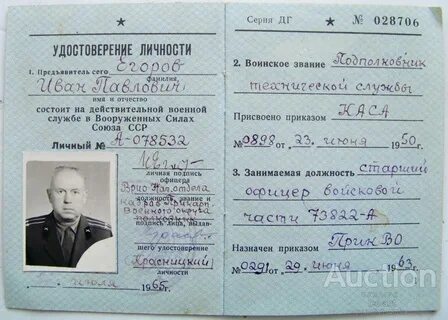 УДОСТОВЕРЕНИЕ ЛИЧНОСТИ
1. Предъявитель сего Егоров
фамилия
Иван Павлович
имя и отчество
состоит на действительной военной
службе в Вооруженных Силах
Союза ССР
Личный № А-078532
личная подпись
офицера
Врио Нач. отдела
кадров Прикарп.
Военного округа
полковник
подпись лица, выдав-
шего удостоверение
Красницкий
личности
июля 1965 г.
Серия ДГ № 028706
2. Воинское звание Подполковник
технической службы
Присвоено приказом КАСА
№ 0898 от 23 июня 1950 г.
3. Занимаемая должность старший
офицер войсковой
части 73822-А
Назначен приказом ПрикВО
№ 0291 от 29 июня 1963 г.
Auction